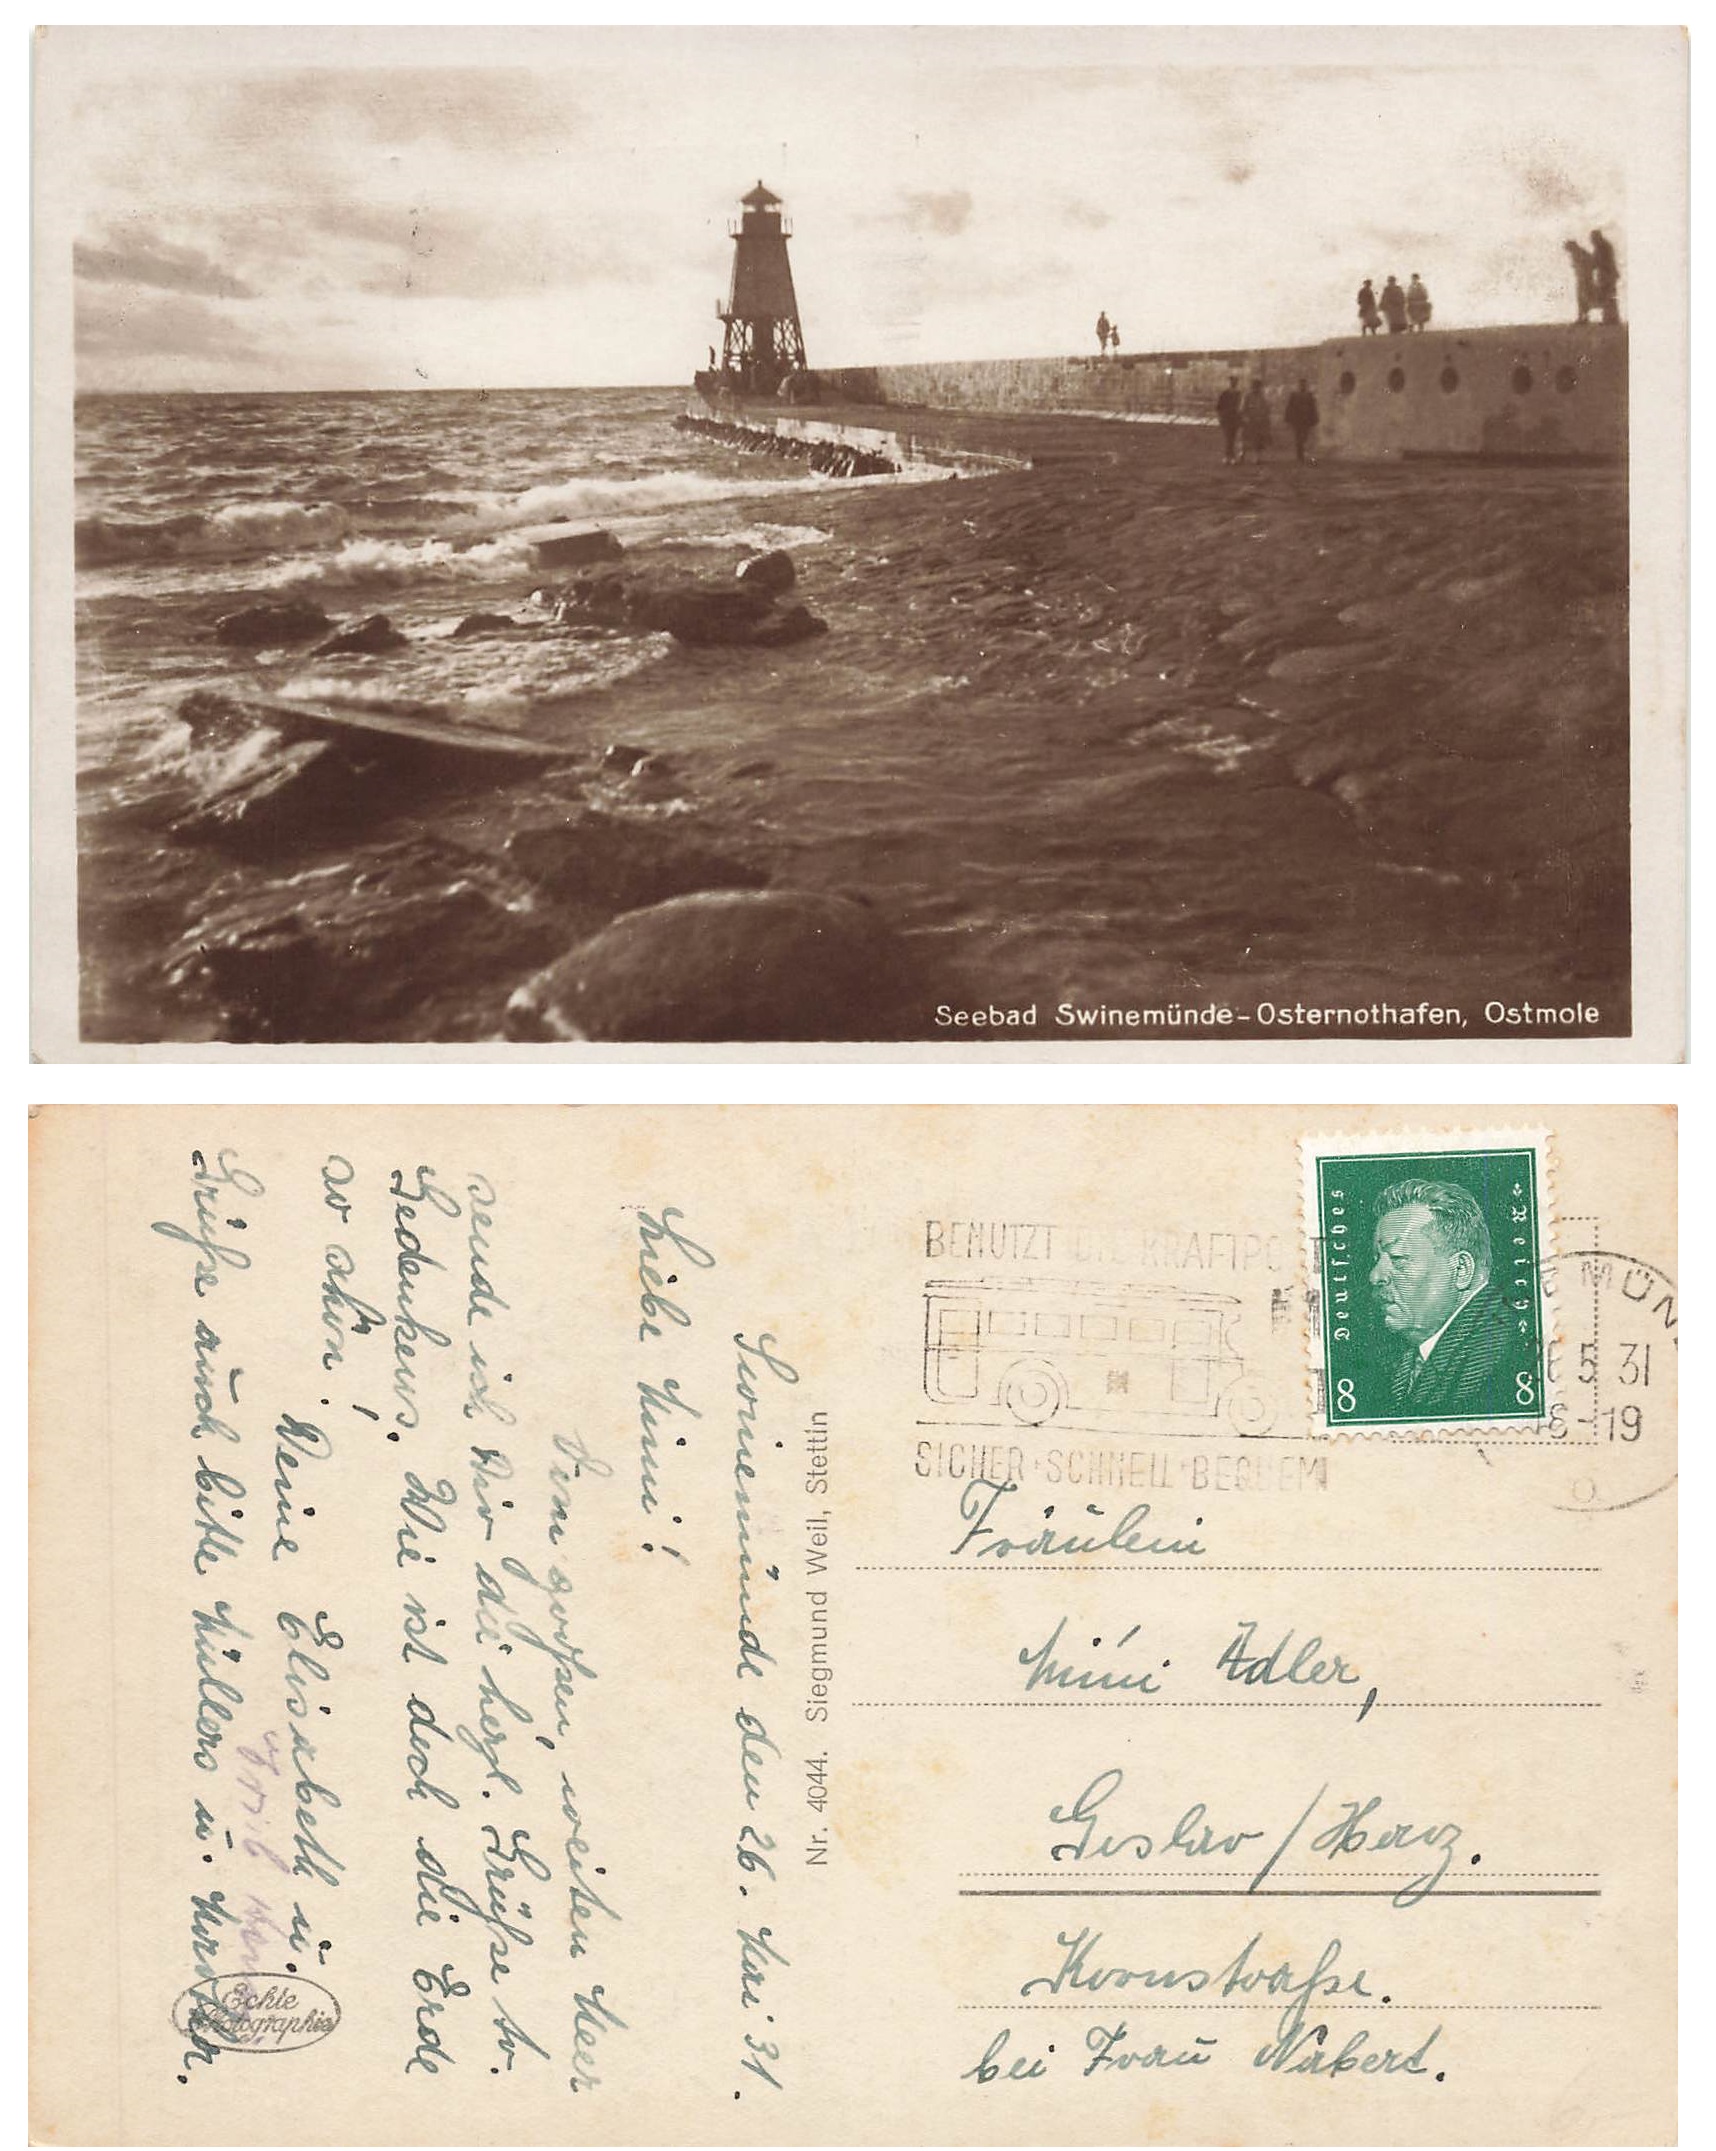 Seebad Swinemünde-Osternothafen, Ostmole
BENUTZT DIE KRAFTPO
SICHER·SCHNELL·BEQUEM
Deutsches
Reich
8
8
MÜN
5 31
-19
Fräulein
Mimi Adler,
Goslar / Harz.
Kornstraße.
bei Frau Nabert.
Nr. 4044. Siegmund Weil, Stettin
Swinemünde den 26. Mai 31.
Liebe Mimi!
Vom großen, weiten Meer
sende ich Dir die herzl. Grüße tr.
Gedenkens. Wie ist doch die Erde
so schön!
Deine Elisabeth u.
Grüße auch bitte Müllers u.
Echte
Photographie